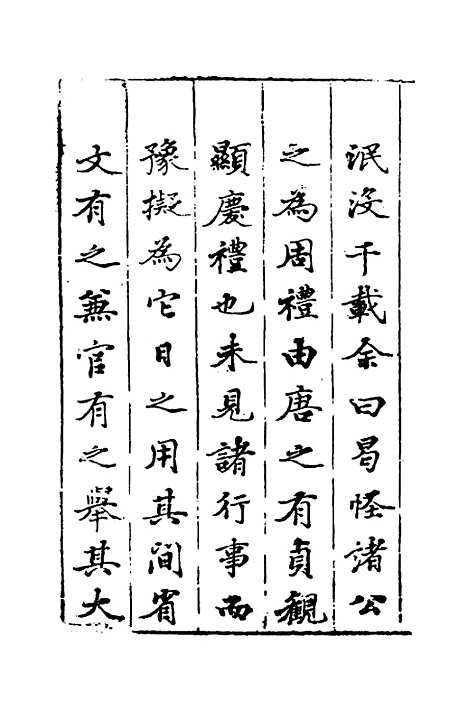 泯没千載余曰曷怪諸公
之為周禮由唐之有貞觀
顯慶禮也未見諸行事而
豫擬為它日之用其間省
文有之兼官有之舉其大